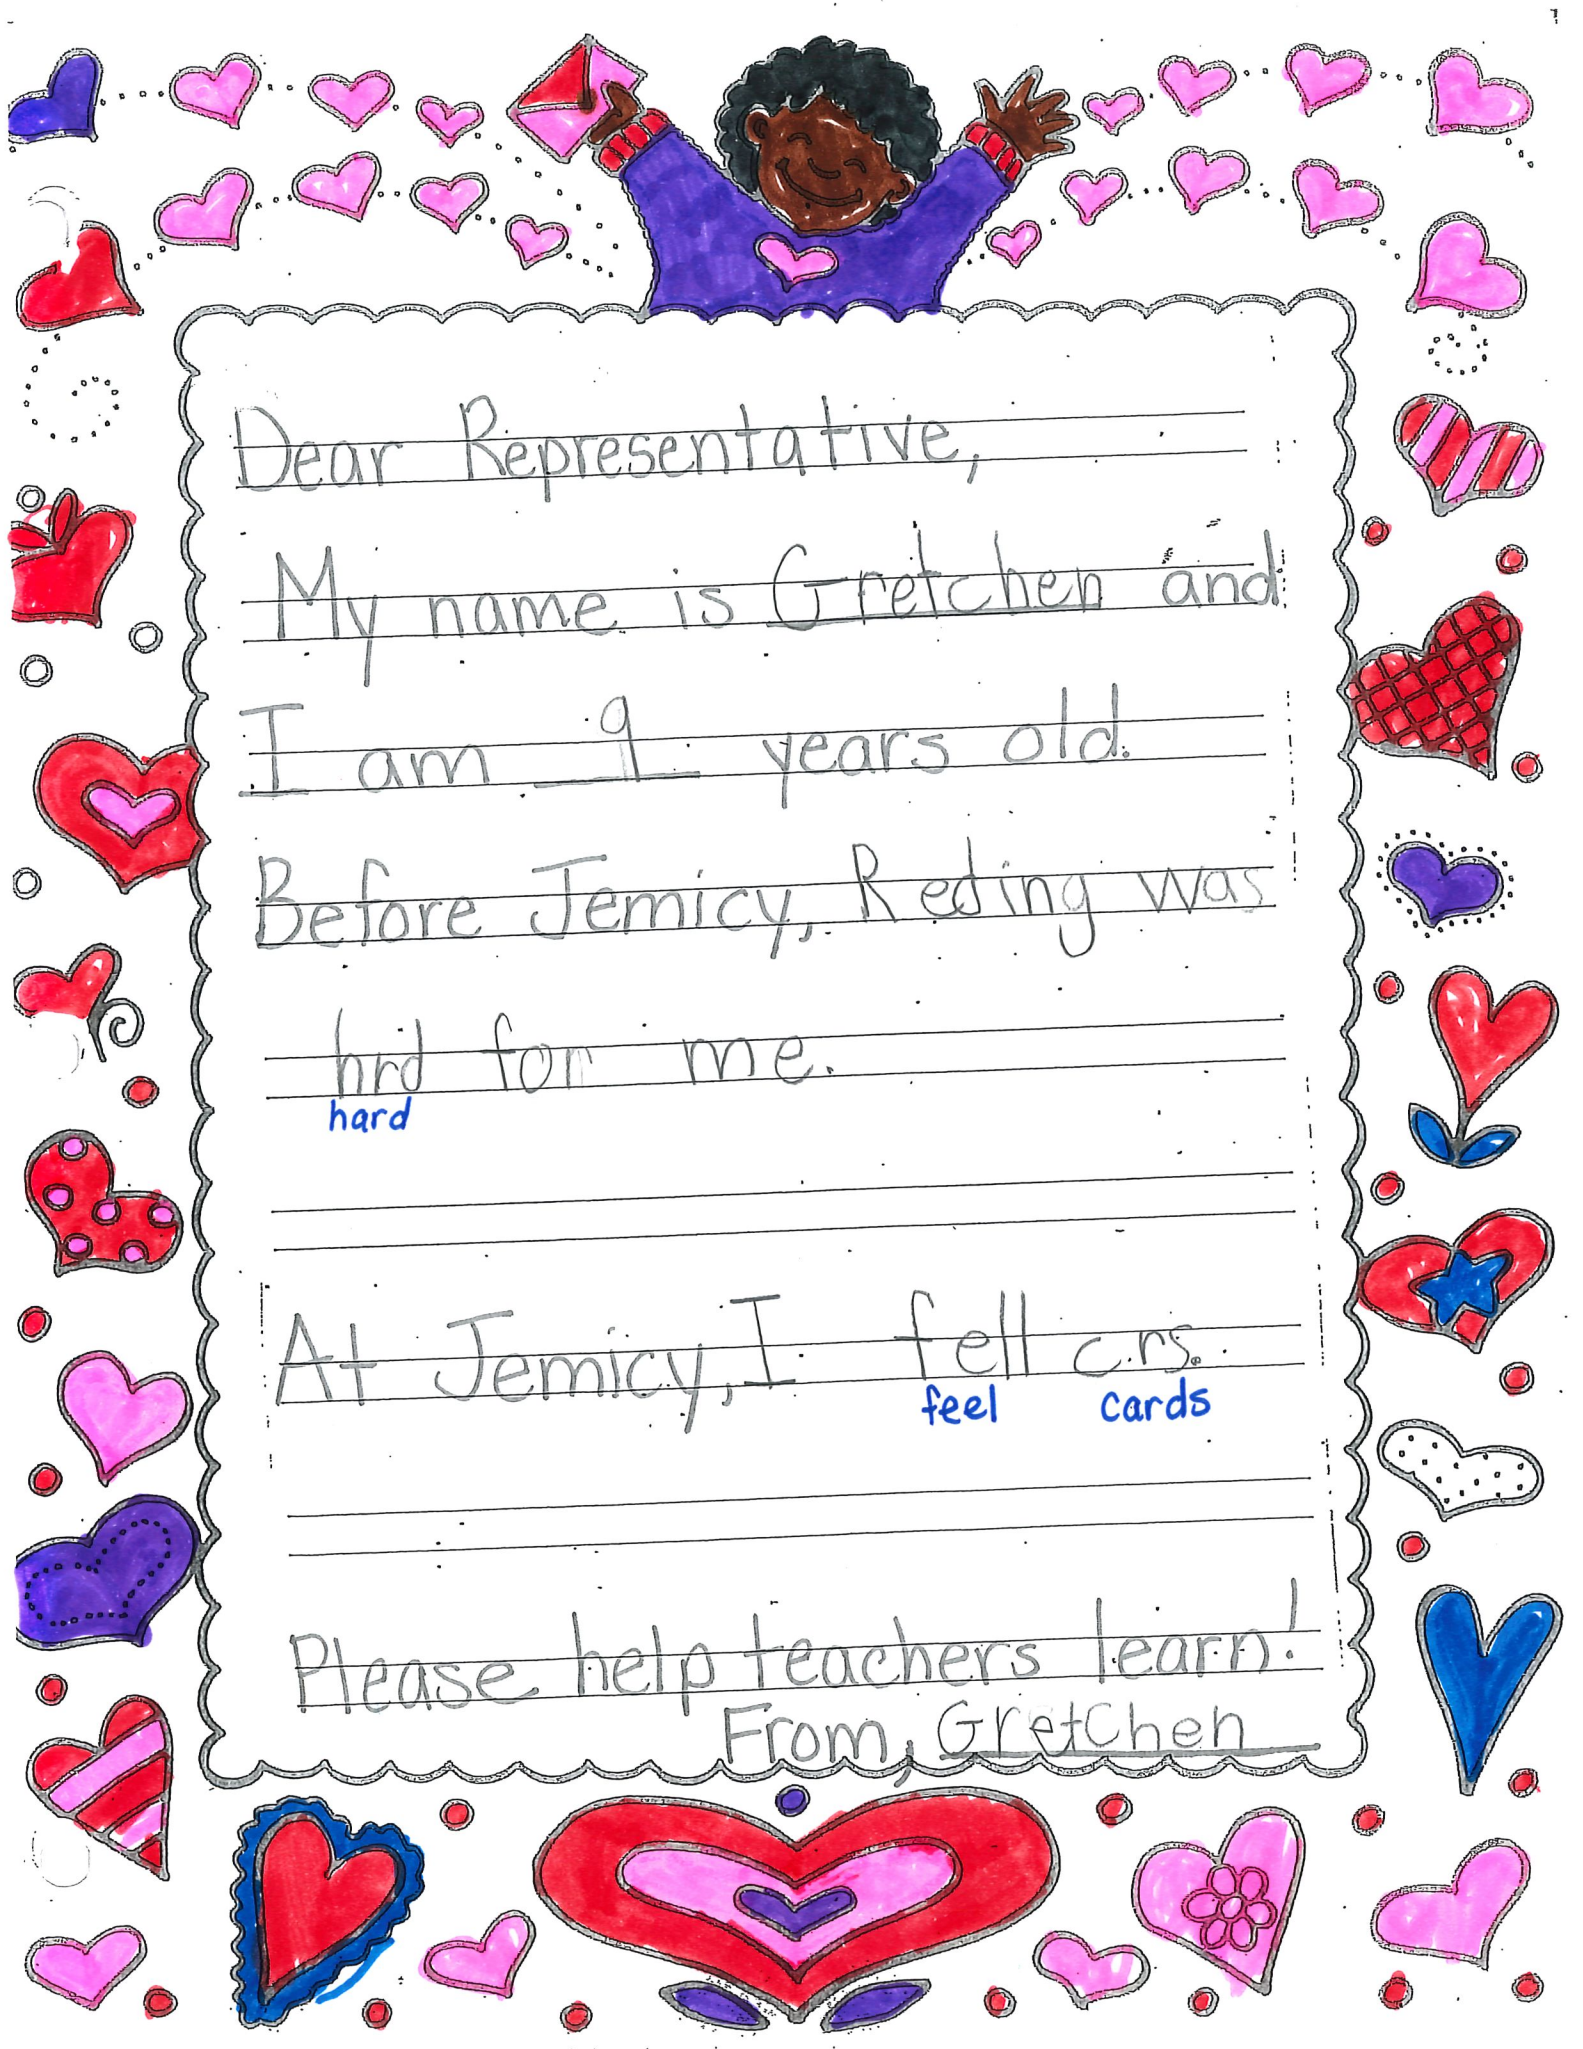 Dear Representative,
My name is Gretchen and
I am 9 years old.
Before Jemicy, Reding was
hrd for me.
hard
At Jemicy, I fell crs.
feel cards
Please help teachers learn!
From, Gretchen